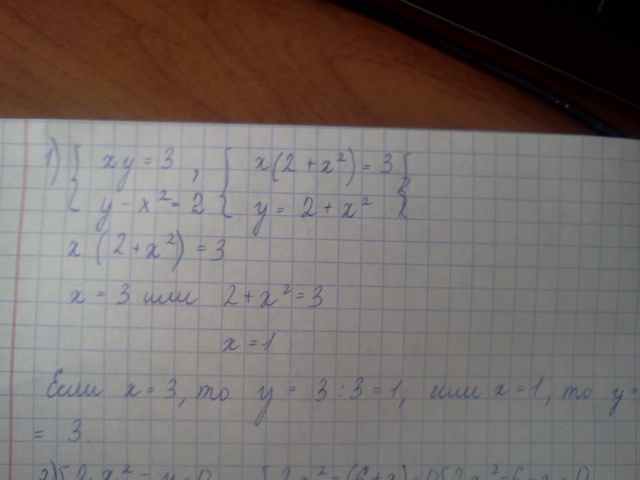 1) { xy = 3 , { x(2 + x²) = 3 {
{ y - x² = 2 { y = 2 + x² {
x (2 + x²) = 3
x = 3 или 2 + x² = 3
x = 1
Если x = 3, то y = 3 : 3 = 1; или x = 1, то y =
= 3.